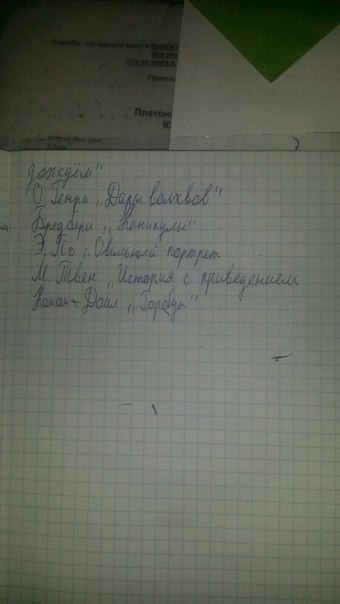 Спасибо, что скачали книгу в
Платон
дождём"
О. Генри „Дары волхвов"
Бредбери „Каникулы"
Э. По „Овальный портрет
М. Твен „История с приведением
Конан-Доил „Горбун"